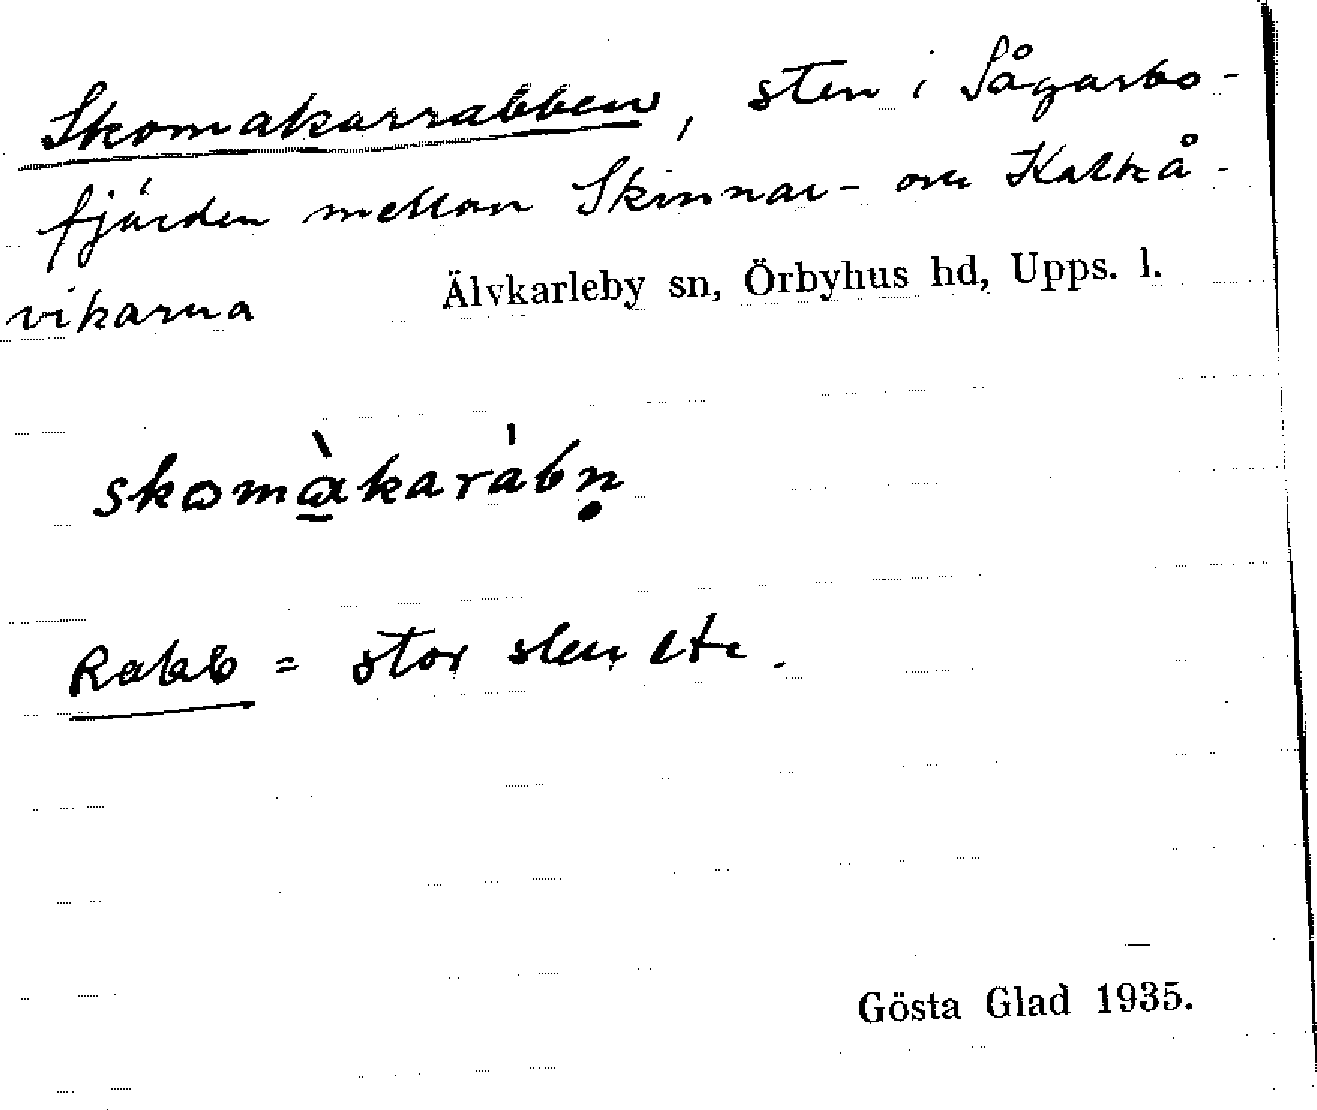 Skomakarrabben, sten i Sågarbo-
fjärden mellan Skinnar- och Kalkå-
vikarna
Älvkarleby sn, Örbyhus hd, Upps. l.
skomàkaràbn̥
Rabb = stor sten etc.
Gösta Glad 1935.